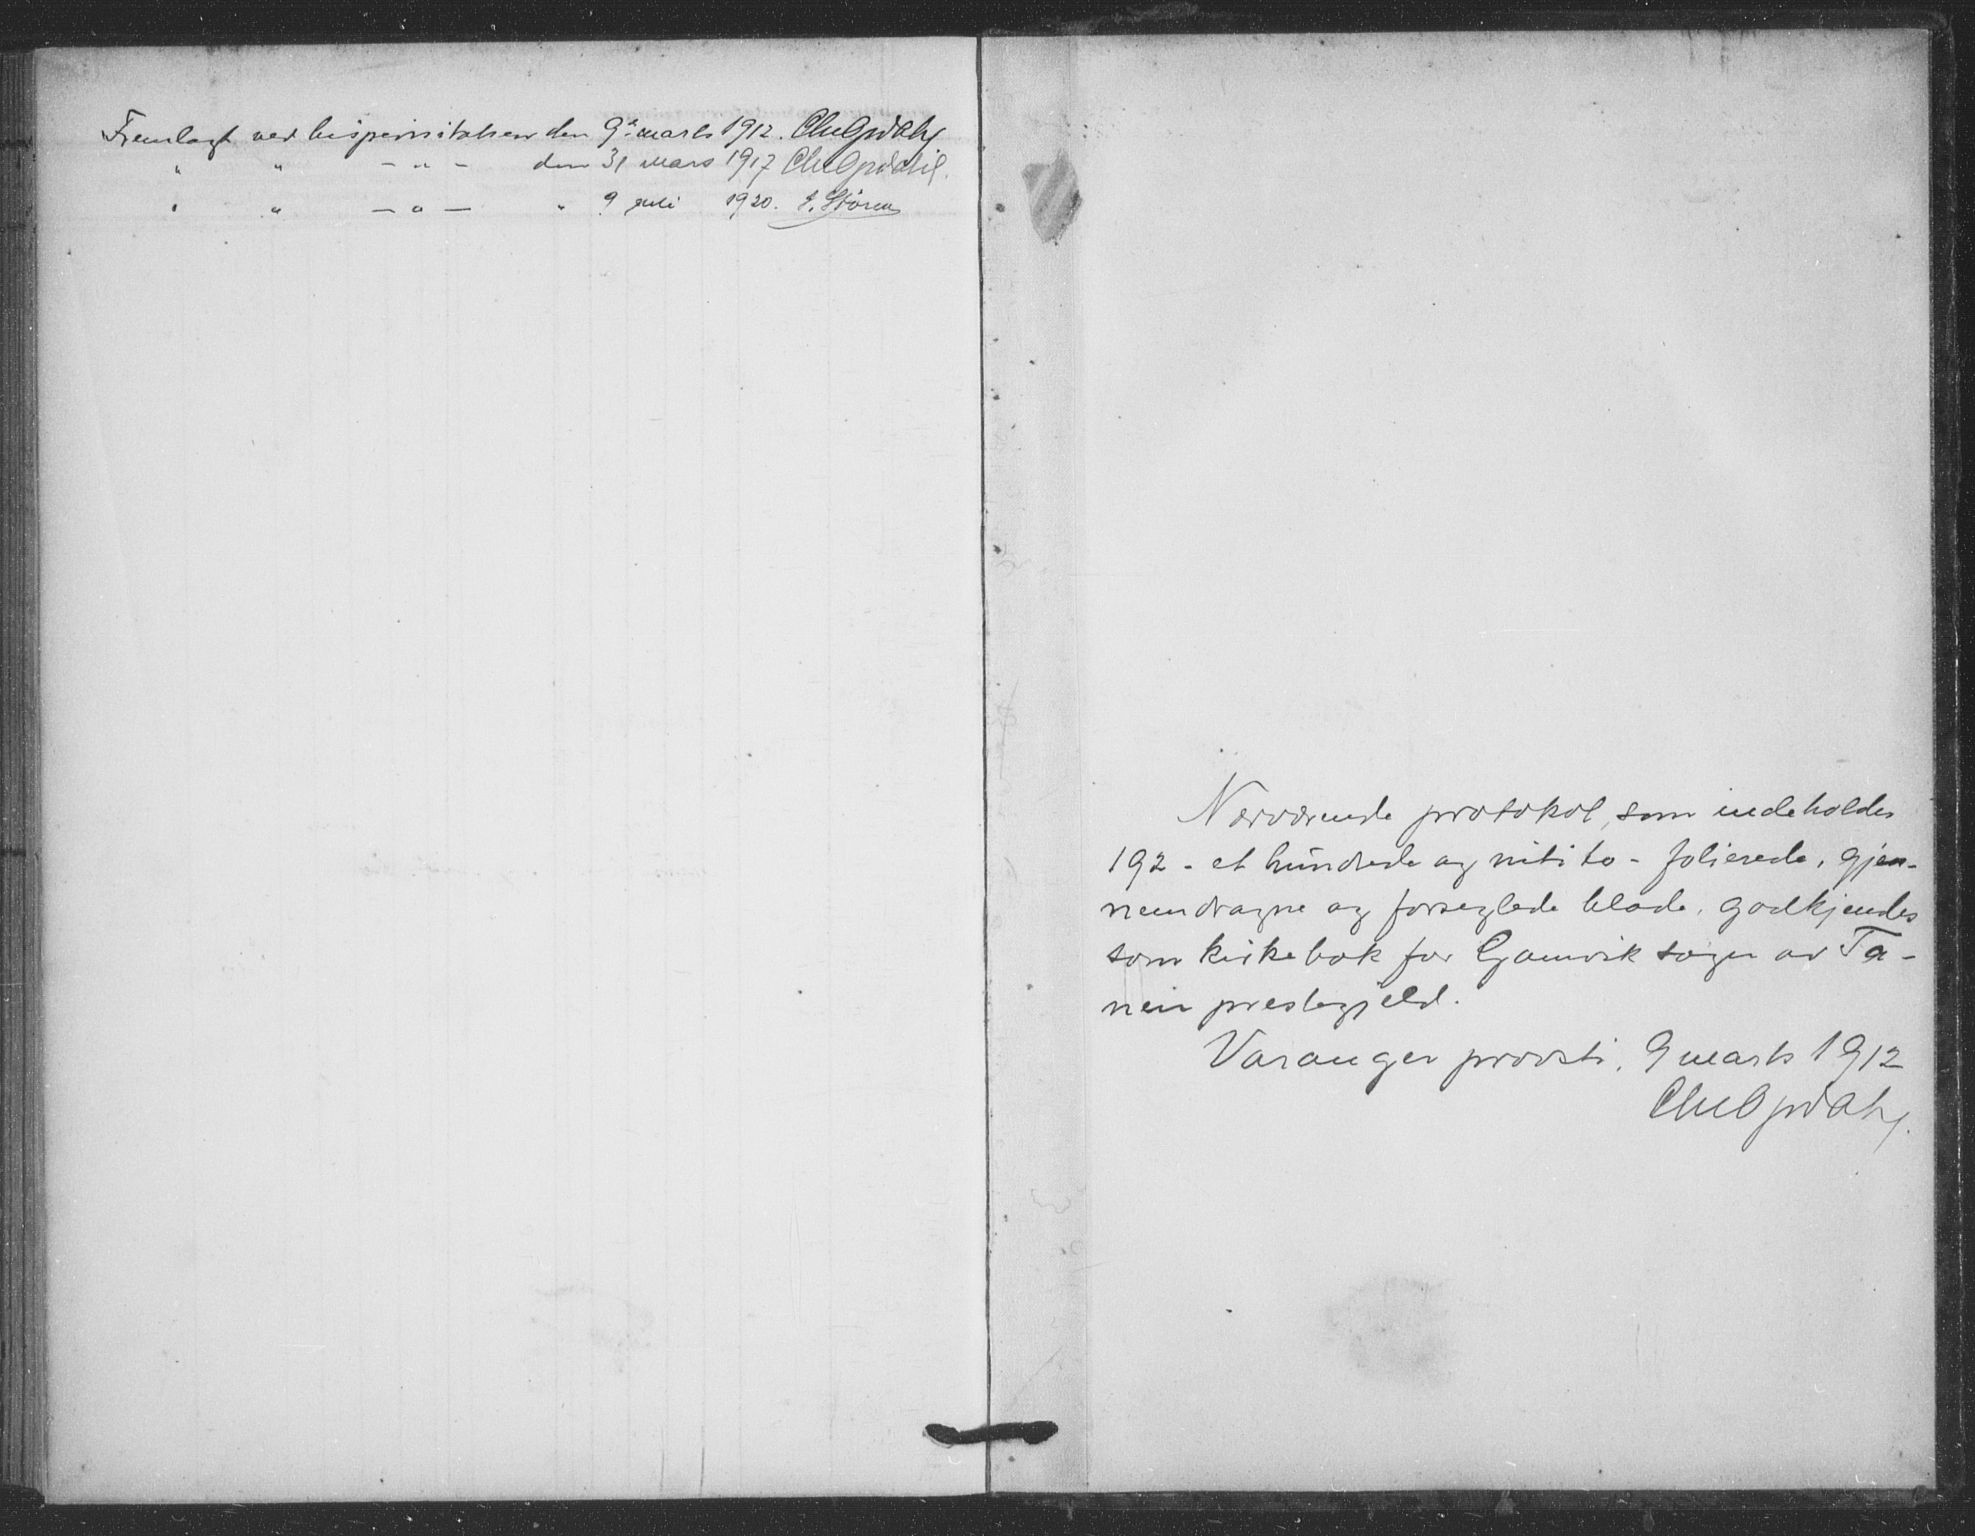 Fremlagt ved bispevisitatsen den 9de marts 1912. Chr Opdahl
" " - " - den 31 mars 1917 Chr Opdahl.
" " - " - " 9 juli 1920. E. Støren
Nærværende protokol, som indeholder
192 - et hundrede og nitito - folierede, gjen-
nemdragne og forseglede blade, godkjendes
som kirkebok for Gamvik sogn av Ta-
nen prestegjeld.
Varanger provsti, 9 marts 1912
Chr Opdahl.